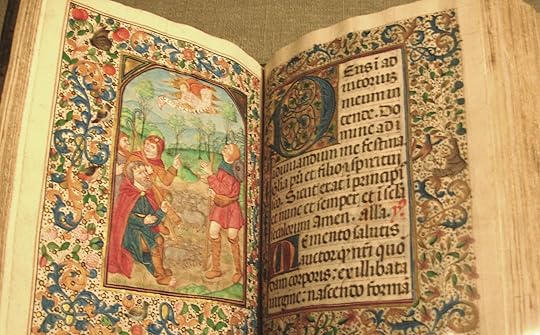 Deus ī ad
iutorius
meum in
tende. Do
mine ad i
adiuuandum me festina
Glīa pr̄i et filio ⁊ spiritui
Sicut erat ī principi
et nunc et semper et ī secl̄a
seculorum amen. alla.
Memento salutis
auctor q̄ nr̄i quō
dam corporis: ex illibata
virgine: nascendo forma